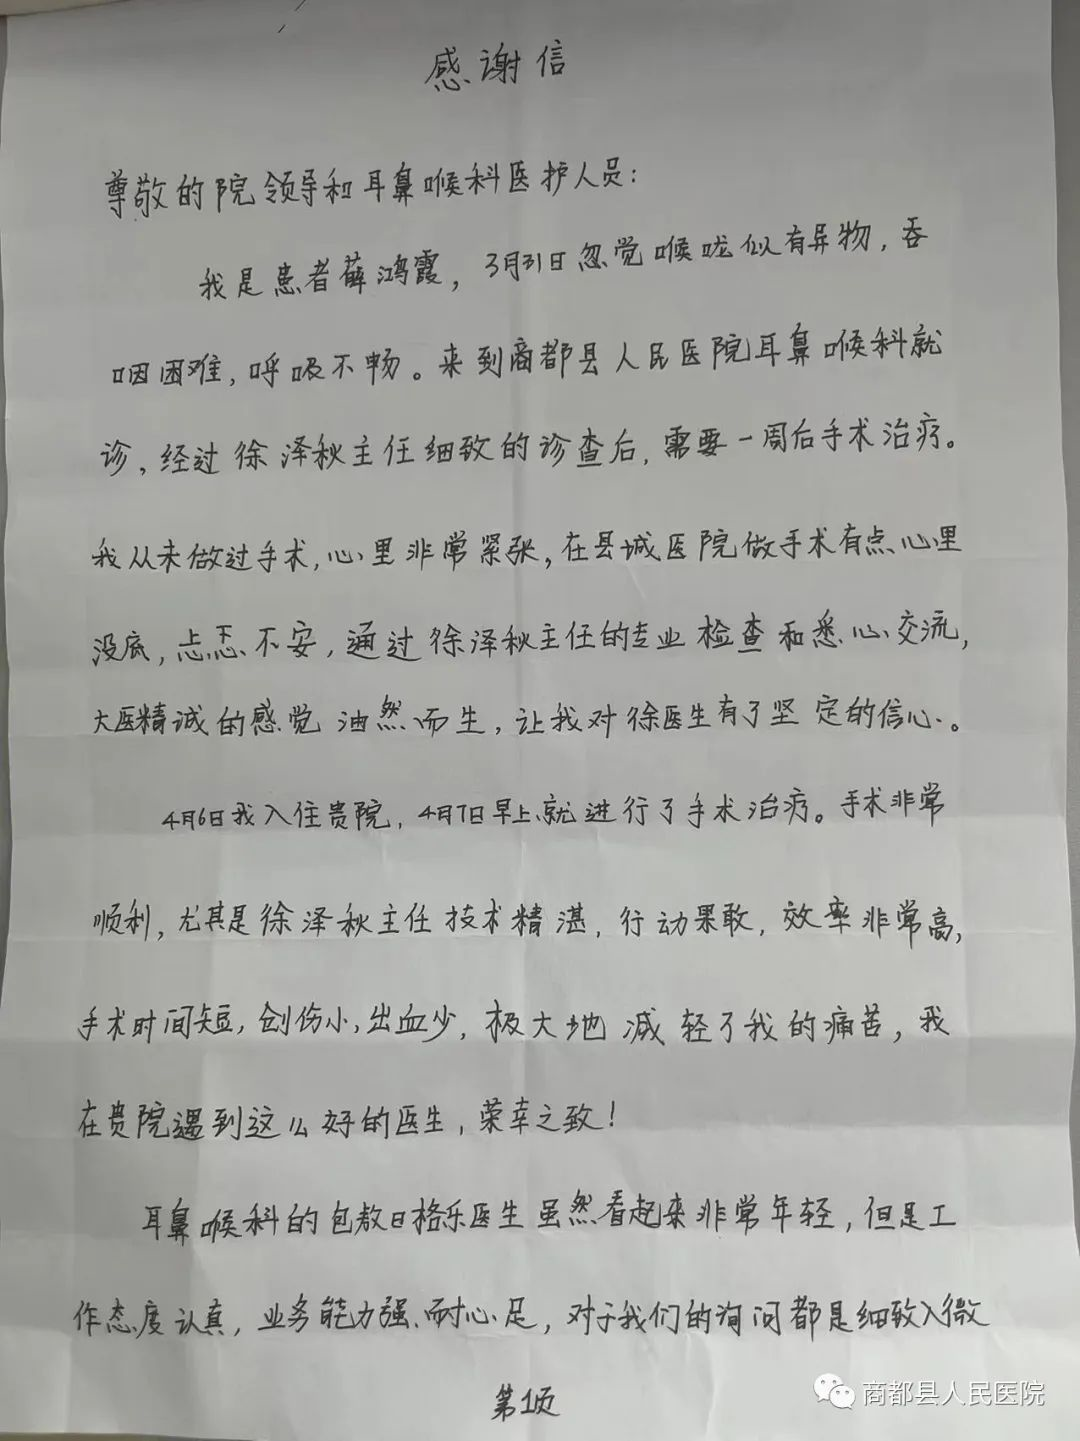 感谢信
尊敬的院领导和耳鼻喉科医护人员:
我是患者薛鸿霞，3月31日忽觉喉咙似有异物，吞
咽困难，呼吸不畅。来到商都县人民医院耳鼻喉科就
诊，经过徐泽秋主任细致的诊查后，需要一周后手术治疗。
我从未做过手术，心里非常紧张，在县城医院做手术有点心里
没底，忐忑不安，通过徐泽秋主任的专业检查和悉心交流，
大医精诚的感觉油然而生，让我对徐医生有了坚定的信心。
4月6日我入住贵院，4月7日早上就进行了手术治疗。手术非常
顺利，尤其是徐泽秋主任技术精湛，行动果敢，效率非常高，
手术时间短，创伤小，出血少，极大地减轻了我的痛苦，我
在贵院遇到这么好的医生，荣幸之致!
耳鼻喉科的包敖日格乐医生虽然看起来非常年轻，但是工
作态度认真，业务能力强、耐心足，对于我们的询问都是细致入微
第1页
商都县人民医院